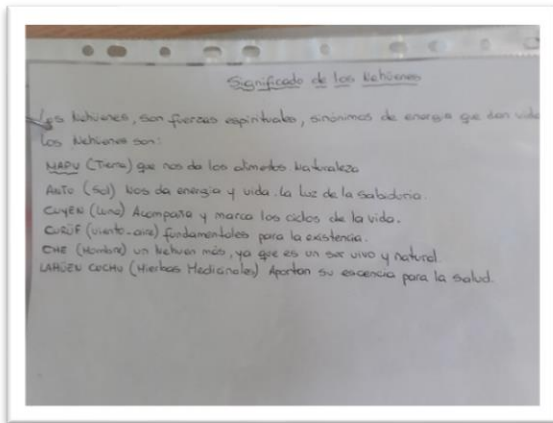 Significado de los Nehüenes
Los Nehüenes, son fuerzas espirituales, sinónimos de energia que dan vida
Los Nehüenes son:
MAPU (Tierra) que nos da los alimetos. Naturaleza
ANTÜ (Sol) Nos da energia y vida. La luz de la sabiduria.
CUYEN (Luna) Acompaña y marca los ciclos de la vida.
CURÜF (viento-aire) fundamentales para la existencia.
CHE (Hombre) un Nehuen más, ya que es un ser vivo y natural.
LAHÜEN CUCHU (Hierbas Medicinales) Aportan su escencia para la salud.